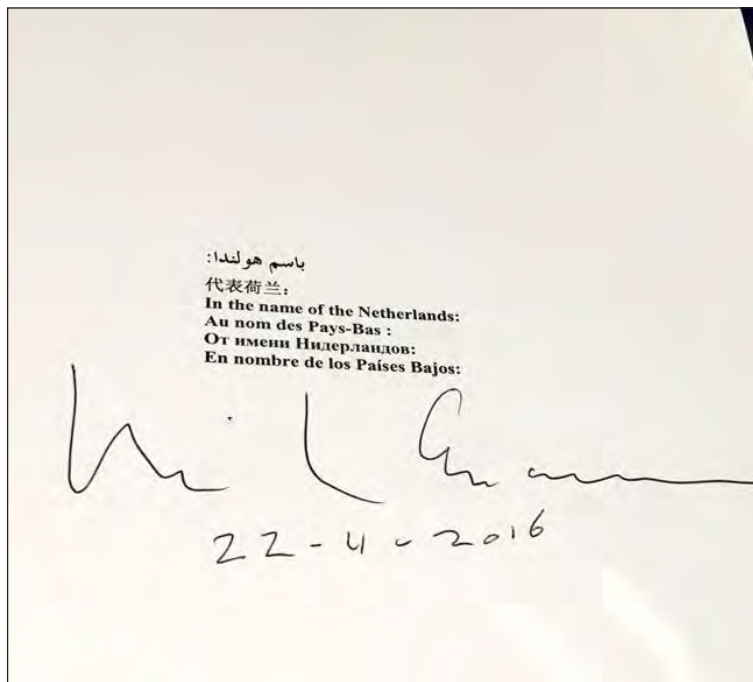 باسم هولندا:
代表荷兰：
In the name of the Netherlands:
Au nom des Pays-Bas :
От имени Нидерландов:
En nombre de los Países Bajos:
22-4-2016